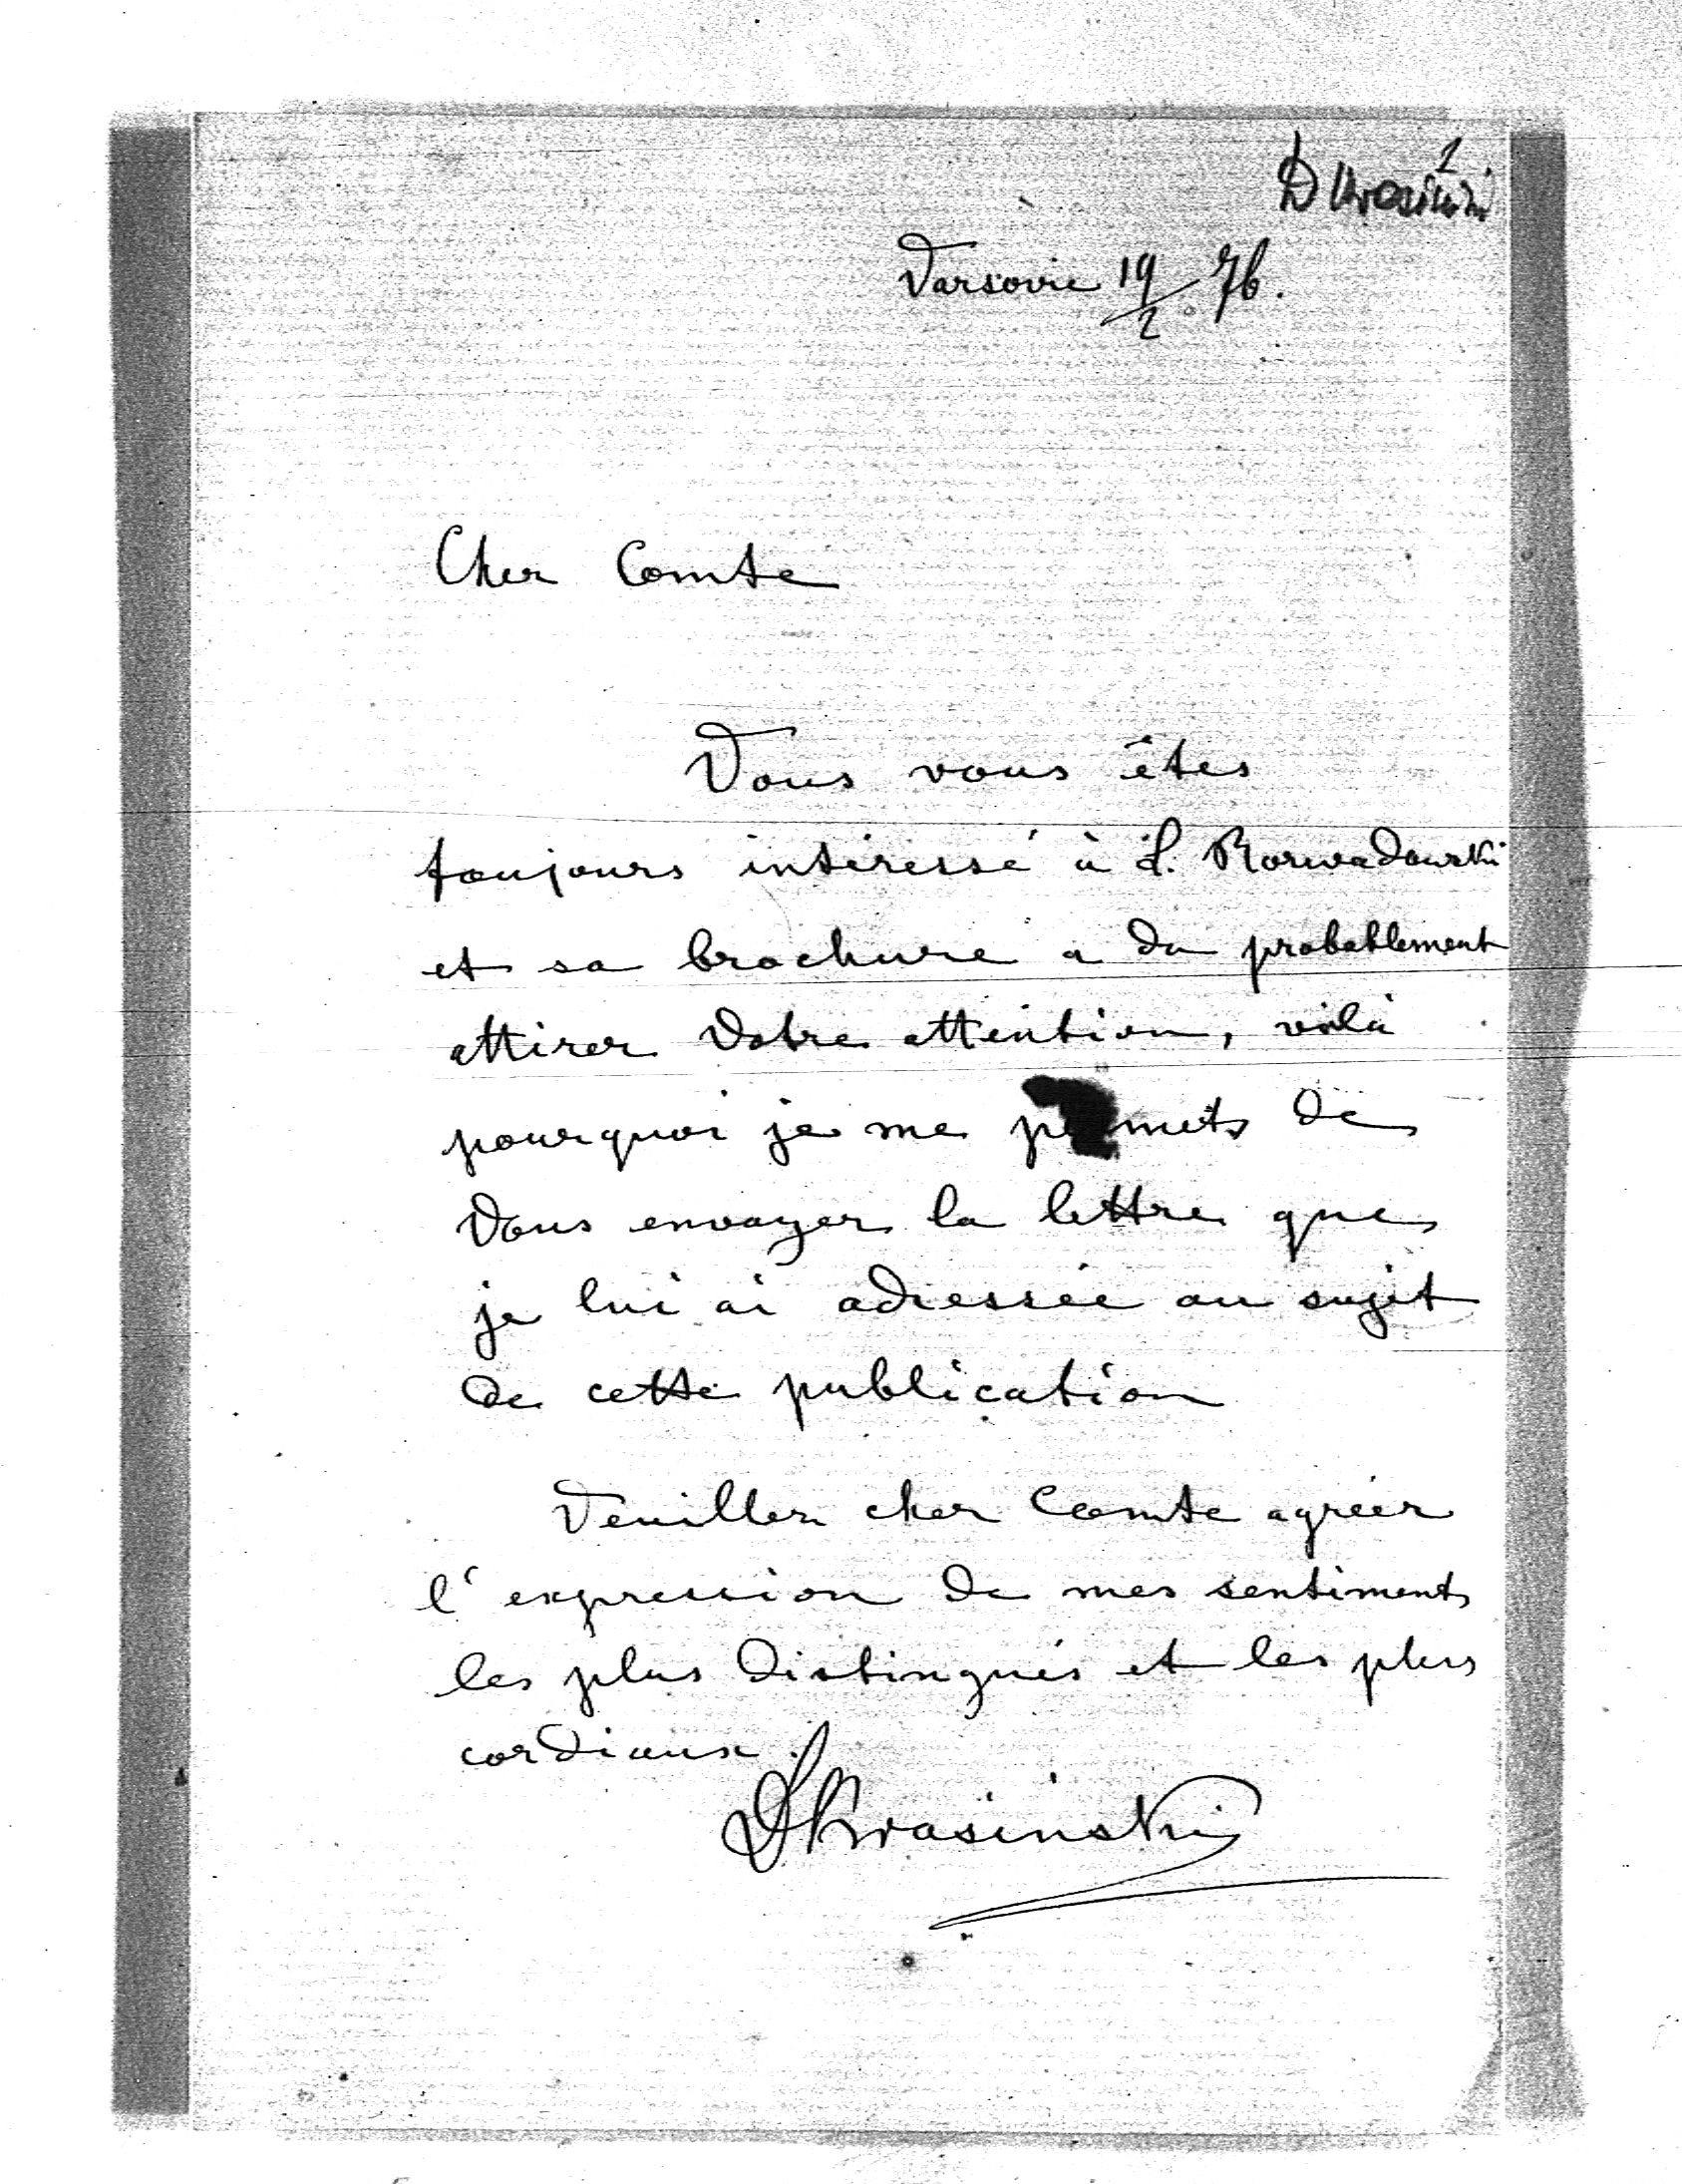 1
D Krasiński
Varsovie 19/2 76.
Cher Comte
Vous vous êtes
toujours intéressé à L. Rozwadowski
et sa brochure a du probablement
attirer Votre attention, voilà
pourquoi je me permets de
Vous envoyer la lettre que
je lui ai adressée au sujet
de cette publication
Veuillez cher Comte agréer
l'expression de mes sentiments
les plus distingués et les plus
cordiaux.
DKrasinski